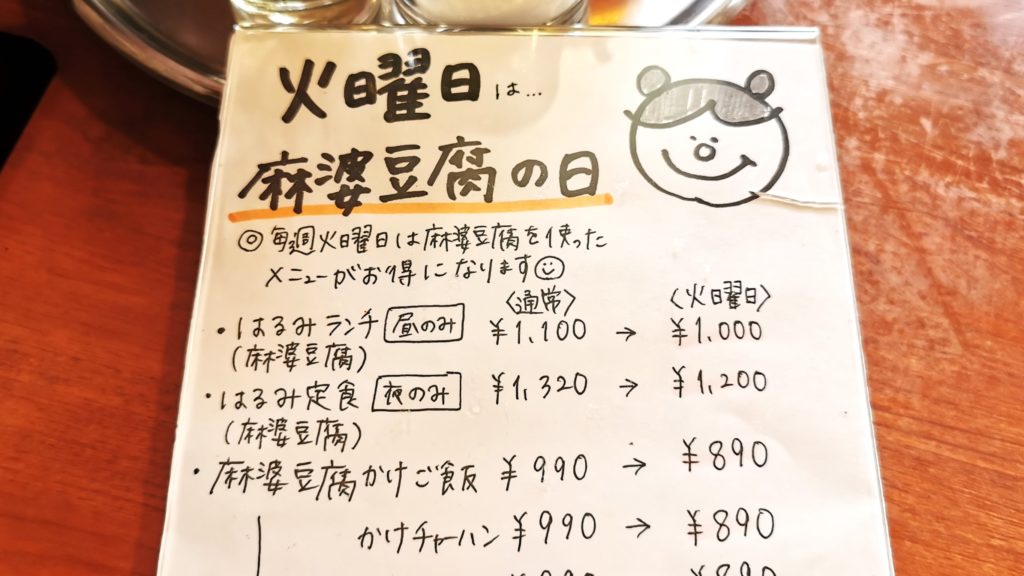 火曜日は…
麻婆豆腐の日
◎毎週火曜日は麻婆豆腐を使った
メニューがお得になります☺
〈通常〉 〈火曜日〉
・はるみランチ 昼のみ ¥1,100 → ¥1,000
(麻婆豆腐)
・はるみ定食 夜のみ ¥1,320 → ¥1,200
(麻婆豆腐)
・麻婆豆腐かけご飯 ¥990 → ¥890
かけチャーハン ¥990 → ¥890